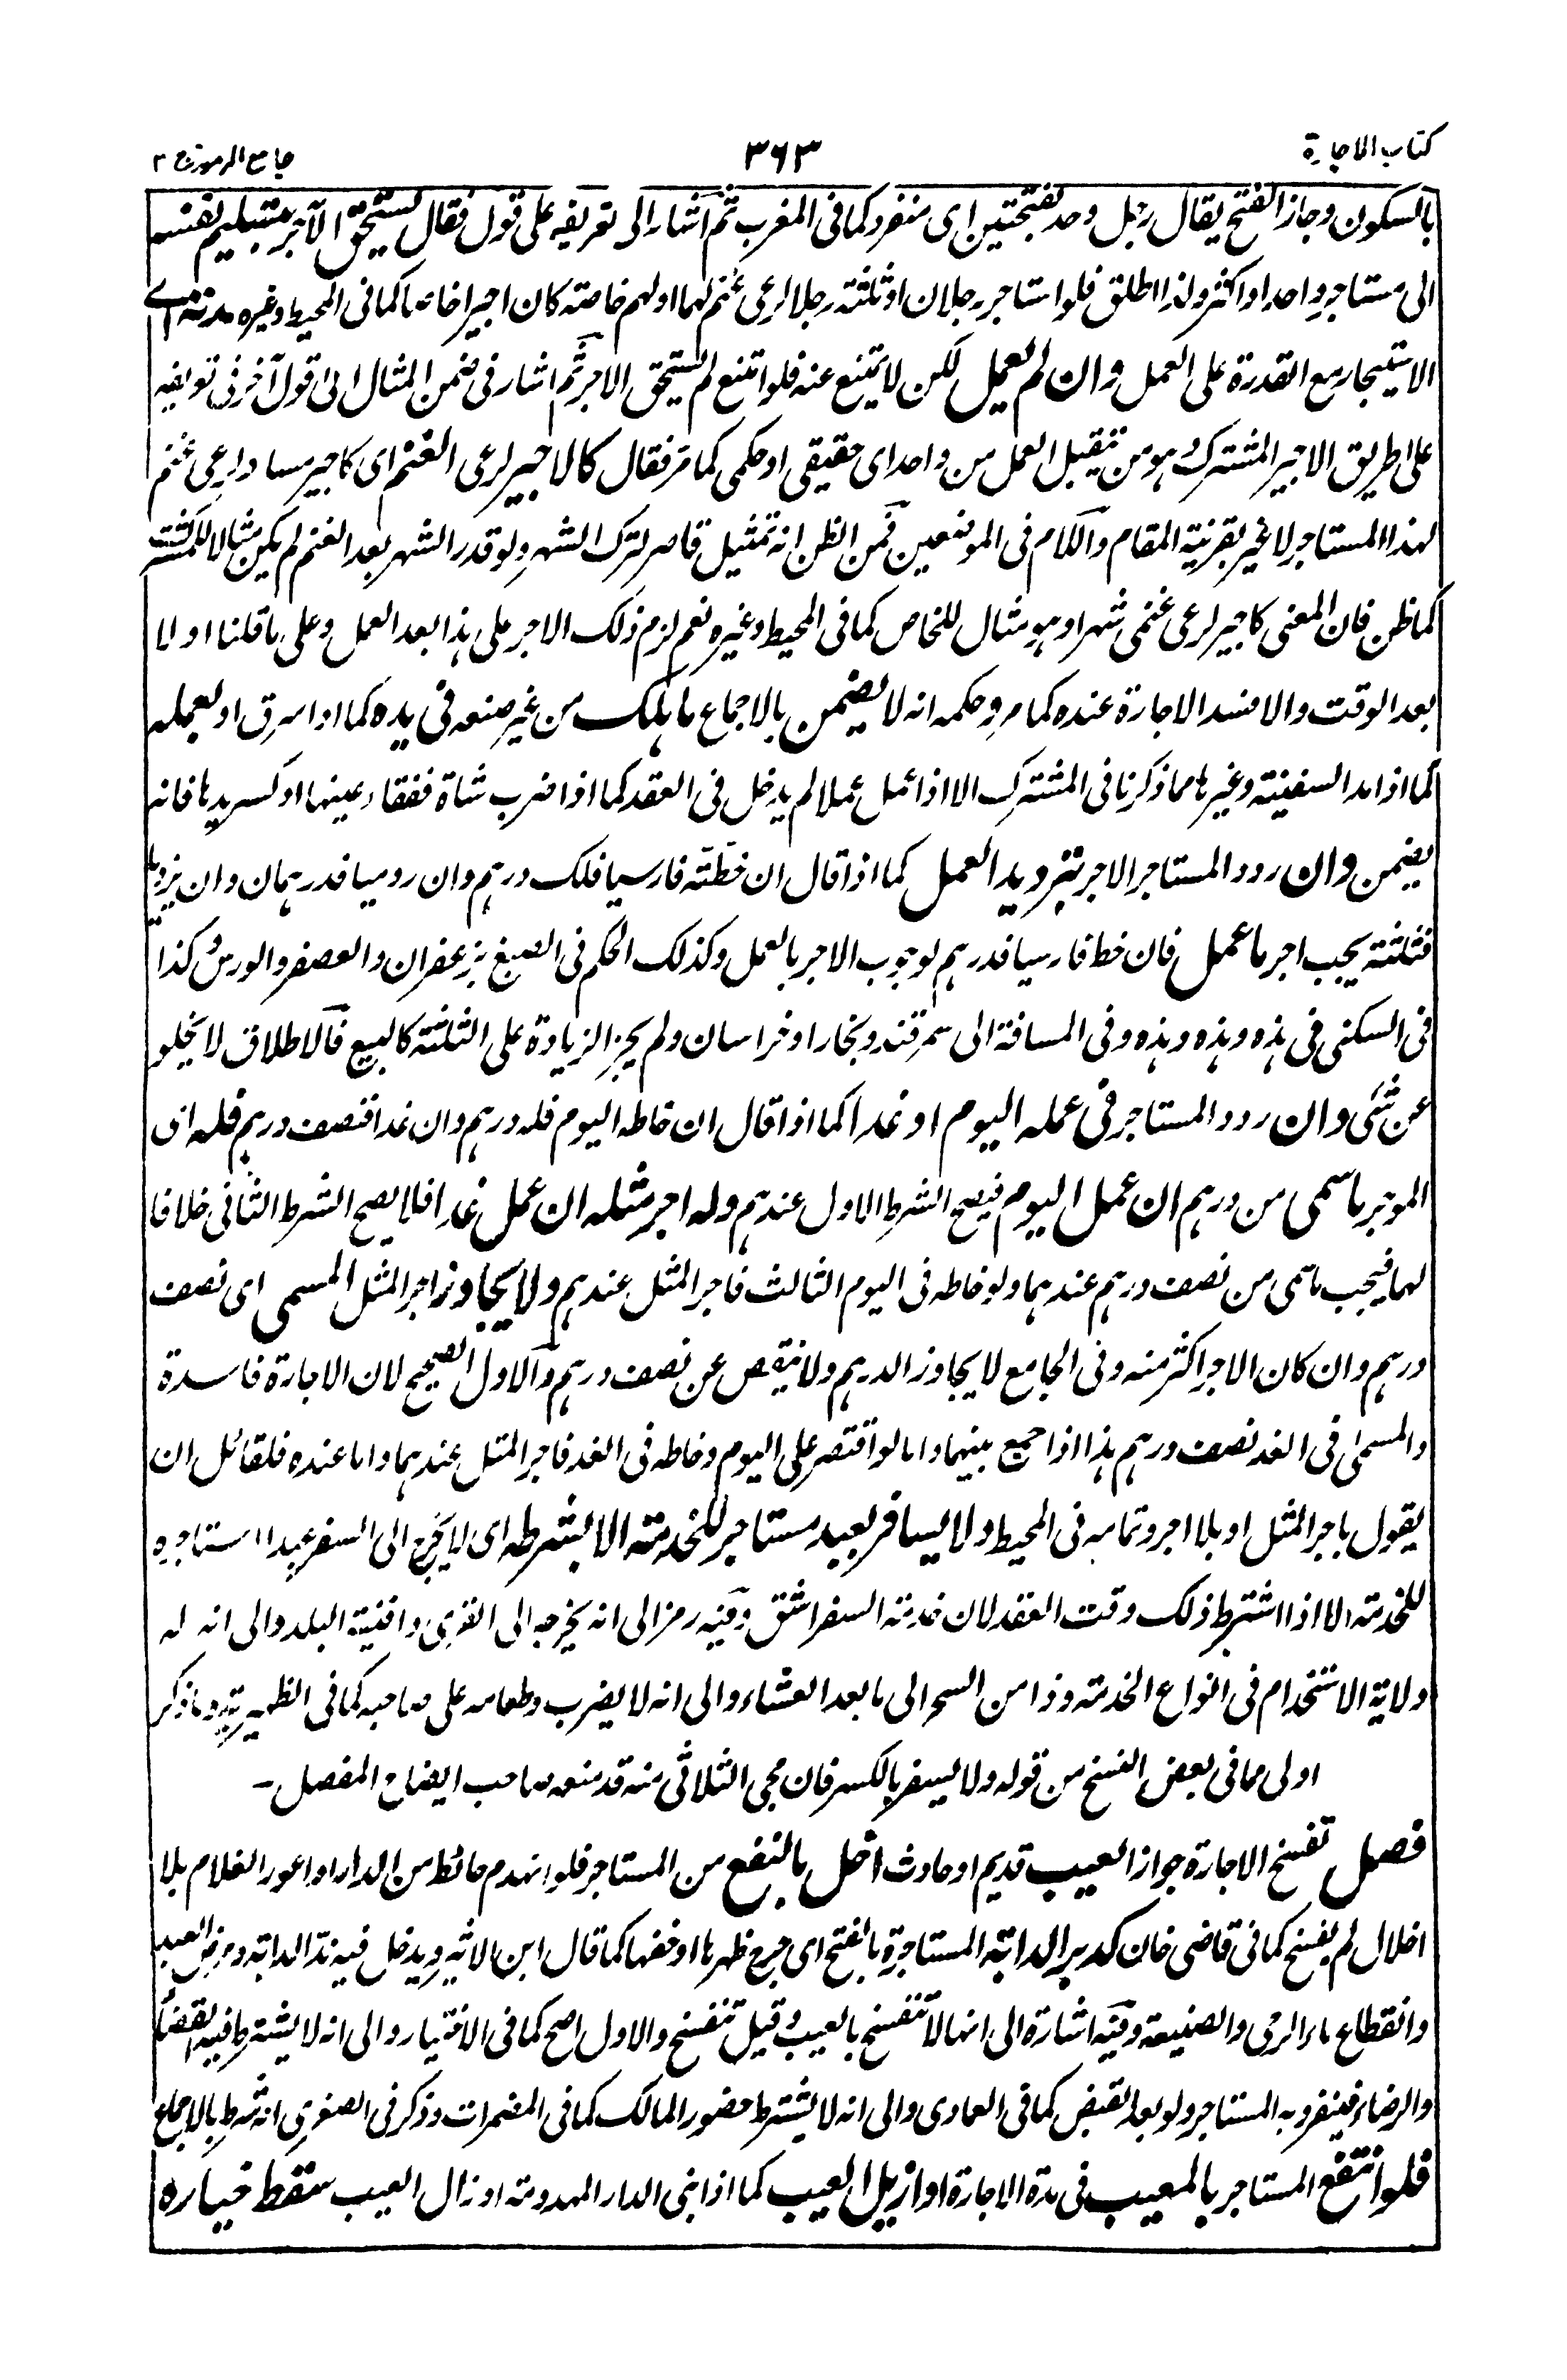 كتاب الاجارة
٣٦٣
جامع الرموز ج ٣
بالسكون وجاز الفتح يقال رجل وحد بفتحتين اى منفرد كما فى المغرب ثم اشار الى تعريفه على قول فقال يستحق الاجر بتسليم نفسه
الى مستاجر واحد او اكثر ولذا اطلق فلو استاجر رجلان او ثلثة رجلا لرعى غنم لهما او لهم خاصة كان اجيرا خاصا كما فى المحيط وغيره مدته اى
الاستيجار مع القدرة على العمل وان لم يعمل لكن لا يمتنع عنه فلو امتنع لم يستحق الاجر ثم اشار فى ضمن المثال الى قول آخر فى تعريفه
على طريق الاجير المشترك وهو من يتقبل العمل من واحد اى حقيقى او حكمى كما مر فقال كالاجير لرعى الغنم اى كاجير لرعى غنم
لهذا المستاجر لا غير بقرينة المقام والكلام فى الموضعين فمن الظن انه تمثيل قاصر لترك الشهر ولو قدر الشهر بعد الغنم لم يكن مثالا للمشترك
كما ظن فان المعنى كاجير لرعى غنمى شهرا وهو مثال للخاص كما فى المحيط وغيره نعم لزم ذلك الاجر على هذا بعد العمل وعلى ما قلنا اولا
بعد الوقت والا فسد الاجارة عنده كما مر وحكمه انه لا يضمن بالاجماع ما هلك من غير صنعه فى يده كما اذا سرق او بعمله
كما اذا مد السفينة وغيرها مما ذكرنا فى المشترك الا اذا عمل عملا لم يدخل فى العقد كما اذا ضرب شاة ففقاء عينها او كسر يدها فانه
يضمن وان ردد المستاجر الاجر بترديد العمل كما اذا قال ان خطته فارسيا فلك درهم وان روميا فدرهمان وان يزديا
فثلثة يجب اجر ما عمل فان خط فارسيا فدرهم لوجوب الاجر بالعمل وكذلك الحكم فى الصبغ بزعفران والعصفر والورس وكذا
فى السكنى فى هذه وهذه وهذه وفى المسافة الى سمرقند وبخارا وخراسان ولم يجز الزيادة على الثلثة كالبيع فالاطلاق لا يخلو
عن شئ وان ردد المستاجر فى عمله اليوم او غدا كما اذا قال ان خاطه اليوم فله درهم وان غدا فنصف درهم فله اى
الموجر ما سمى من درهم ان عمل اليوم فيصح الشرط الاول عندهم وله اجر مثله ان عمل غدا فلا يصح الشرط الثانى خلافا
لهما فيجب ما سمى من نصف درهم عندهما ولو خاطه فى اليوم الثالث فاجر المثل عندهم ولا يجاوز اجر المثل المسمى اى نصف
درهم وان كان الاجر اكثر منه وفى الجامع لا يجاوز الدرهم ولا ينقص عن نصف درهم والاول الصحيح لان الاجارة فاسدة
والمسمى فى الغد نصف درهم هذا اذا جمع بينهما واما لو اقتصر على اليوم وخاطه فى الغد فاجر المثل عندهما واما عنده فلقائل ان
يقول باجر المثل او بلا اجر وتمامه فى المحيط ولا يسافر بعبد مستاجر للخدمة الا بشرطه اى لا يخرج الى السفر عبدا استاجره
للخدمة الا اذا اشترط ذلك وقت العقد لان خدمة السفر اشق وفيه رمز الى انه يخرجه الى القرى وافنية البلد والى انه له
ولاية الاستخدام فى انواع الخدمة وذا من السحر الى ما بعد العشاء والى انه لا يضرب وطعامه على صاحبه كما فى الظهيرية وما ذكر
اولى مما فى بعض النسخ من قوله ولا يسفر بالكسر فان مجى الثلاثى منه قد منعه صاحب ايضاح المفصل -
فصل تفسخ الاجارة جوازا لعيب قديم او حادث اخل بالنفع من المستاجر فلو انهدم حائط من الدار او اعور الغلام بلا
اخلال لم يفسخ كما فى قاضى خان كدبر الدابة المستاجرة بالفتح اى جرح ظهرها او خفها كما قال ابن الاثير ويدخل فيه ند الدابة ومرض العبد
وانقطاع ماء الرحى والضيعة وفيه اشارة الى انها لا تنفسخ بالعيب وقيل تنفسخ والاول اصح كما فى الاختيار والى انه لا يشترط فيه القضاء
والرضاء فينفرد به المستاجر ولو بعد القبض كما فى العمادى والى انه لا يشترط حضور المالك كما فى المضمرات وذكر فى الصغرى انه شرط بالاجماع
فلو انتفع المستاجر بالمعيب فى مدة الاجارة او ازيل العيب كما اذا بنى الدار المهدومة او زال العيب سقط خياره